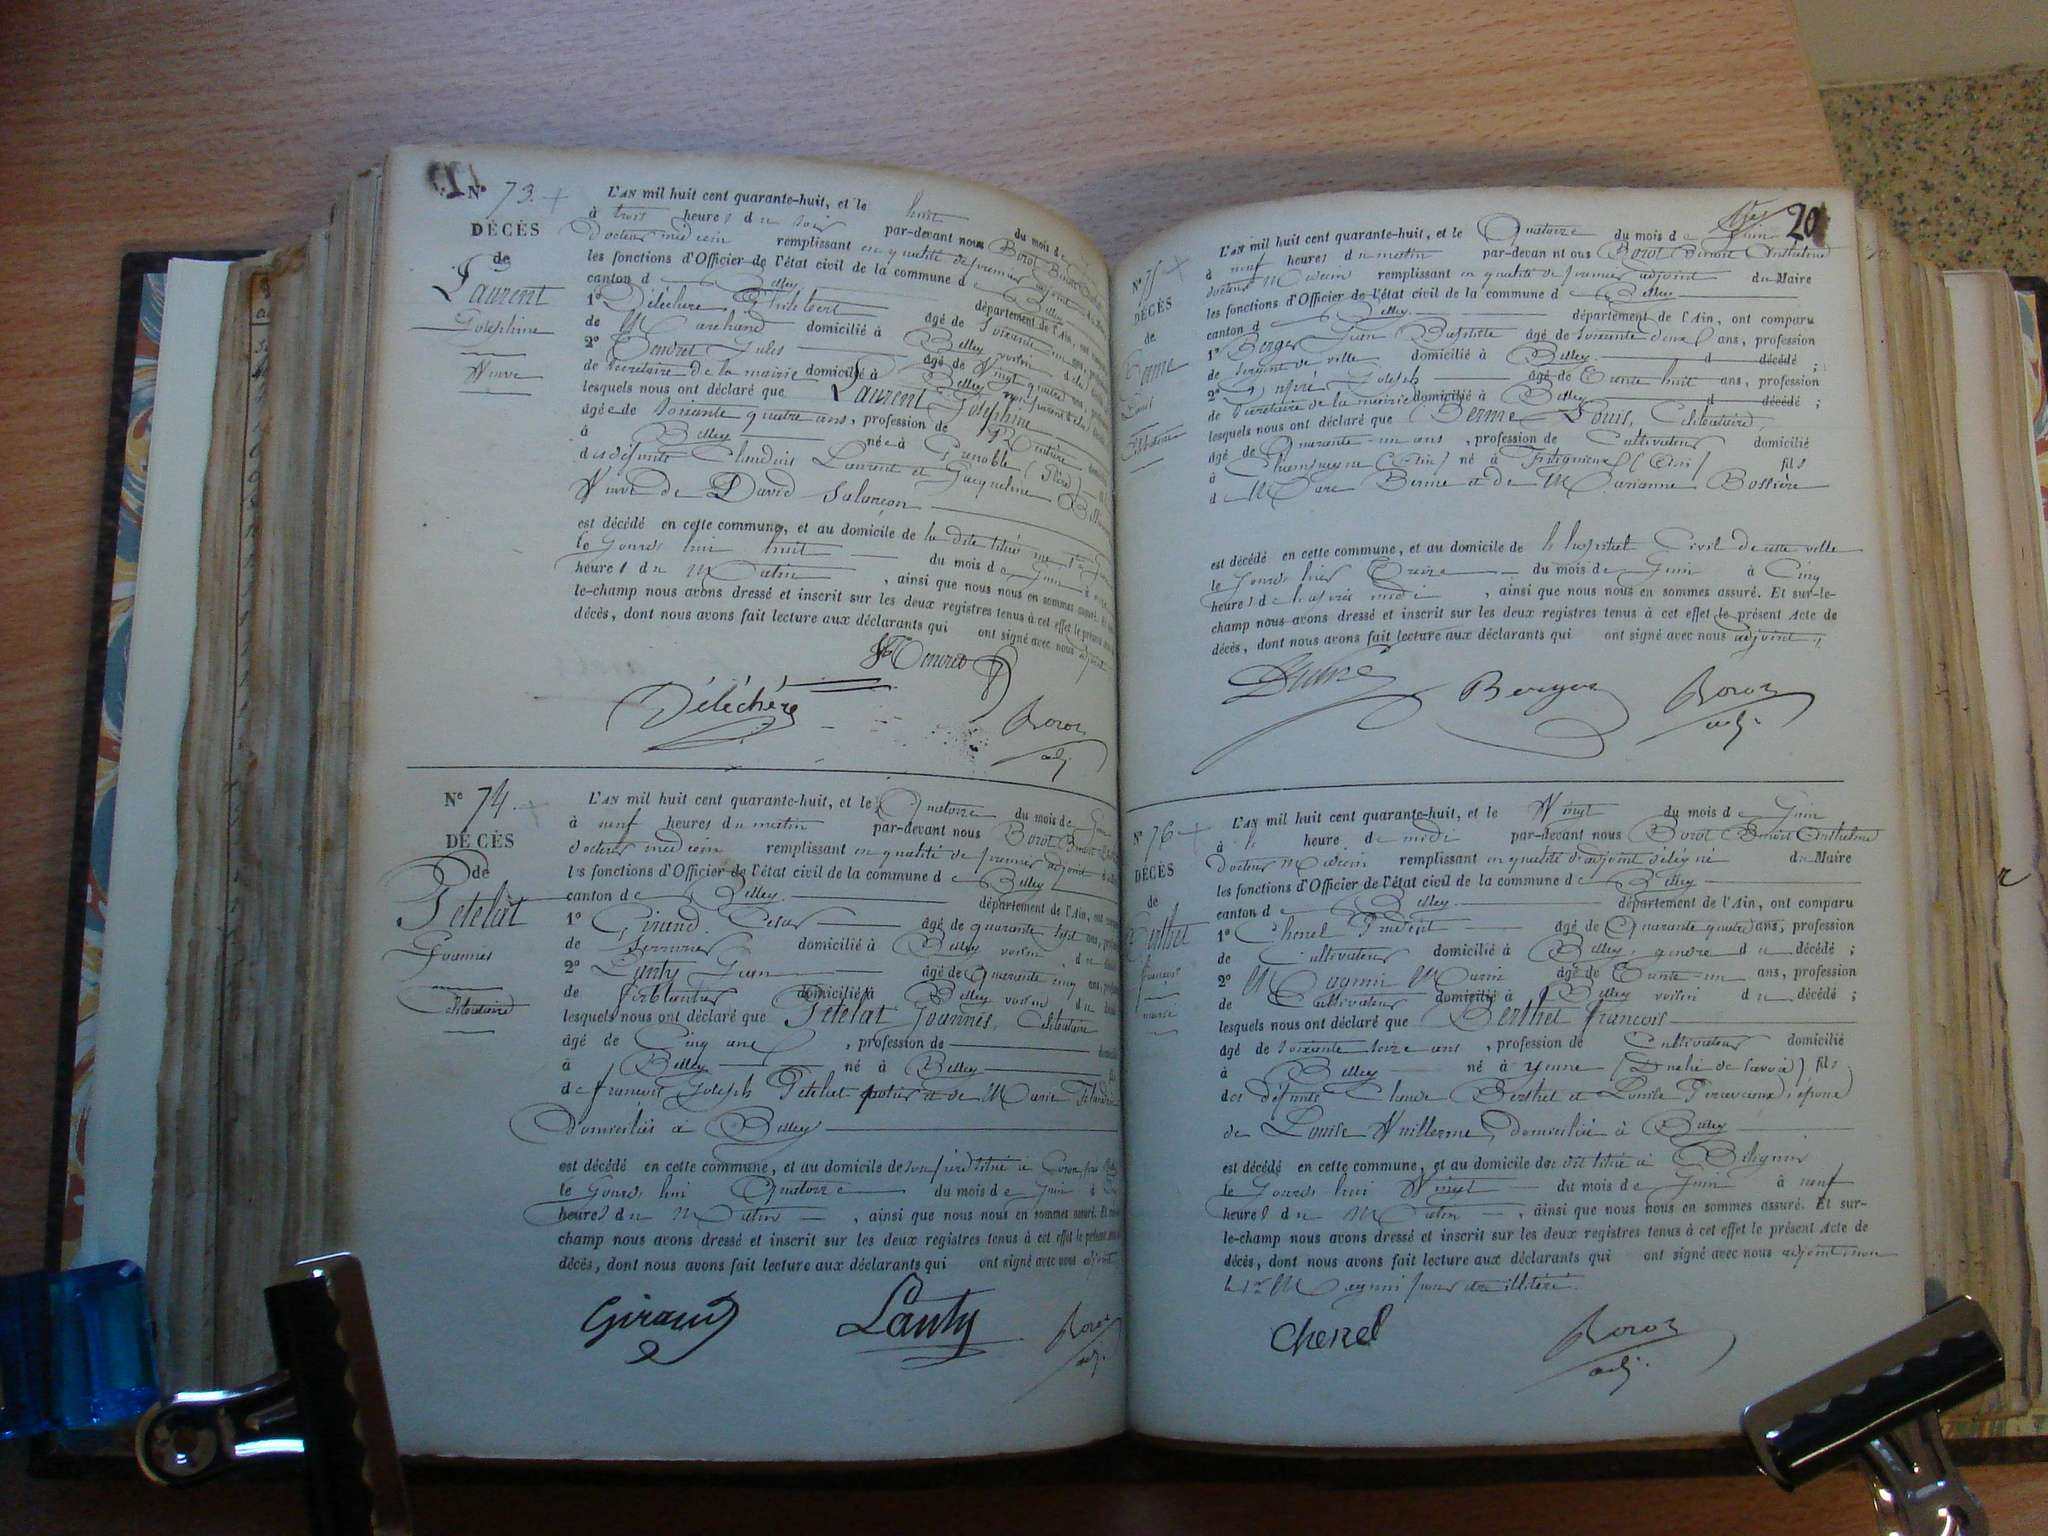 Nº 73.
DÉCÈS
de
Laurent
Josephine
Veuve
L'AN mil huit cent quarante-huit, et le huit du mois de
à trois heures du soir par-devant nous Borot Benoit
Docteur médecin remplissant en qualité de premier adjoint
les fonctions d'Officier de l'état civil de la commune de Belley
canton de Belley département de l'Ain, ont comparu
1º Déléchère Philibert âgé de soixante un ans,
de Marchand domicilié à Belley voisin de la
2º Gendret Jules âgé de Vingt quatre ans,
de secrétaire de la mairie domicilié à Belley non parent de la
lesquels nous ont déclaré que Laurent Josephine
âgée de soixante quatre ans, profession de Rentière
à Belley née à Grenoble (Isère)
des défunts Claudius Laurent et Jacqueline
Veuve de David Salançon
est décédé en cette commune, et au domicile de la dite
le Jourd'hui huit du mois de Juin à
heures du Matin , ainsi que nous nous en sommes assuré. Et
le-champ nous avons dressé et inscrit sur les deux registres tenus à cet effet le présent
décès, dont nous avons fait lecture aux déclarants qui ont signé avec nous adjoint
Déléchère
Borot
adj.
Nº 74.
DÉCÈS
de
Petelat
Joannès
Célibataire
L'AN mil huit cent quarante-huit, et le Quatorze du mois de Juin
à neuf heures du matin par-devant nous Borot Benoit
docteur médecin remplissant en qualité de premier adjoint
les fonctions d'Officier de l'état civil de la commune de Belley
canton de Belley département de l'Ain, ont comparu
1º Giraud César âgé de quarante sept ans,
de serrurier domicilié à Belley voisin du
2º Lanty Jean âgé de Quarante cinq ans,
de ferblantier domicilié à Belley voisin du
lesquels nous ont déclaré que Petelat Joannès, Célibataire
âgé de Cinq ans , profession de
à Belley né à Belley
de françois Joseph Petelat potier et de Marie
Domiciliés à Belley
est décédé en cette commune, et au domicile de son père situé à
le Jourd'hui Quatorze du mois de Juin à
heures du Matin , ainsi que nous nous en sommes assuré. Et
champ nous avons dressé et inscrit sur les deux registres tenus à cet effet le présent
décès, dont nous avons fait lecture aux déclarants qui ont signé avec nous adjoint
Giraud
Lanty
Borot
adj.
20
Nº 75
DÉCÈS
de
Berme
Louis
Célibataire
L'AN mil huit cent quarante-huit, et le Quatorze du mois de Juin
à neuf heures du matin par-devant nous Borot Benoit Anthelme
docteur Médecin remplissant en qualité de premier adjoint du Maire
les fonctions d'Officier de l'état civil de la commune de Belley
canton de Belley département de l'Ain, ont comparu
1º Berger Jean Baptiste âgé de soixante deux ans, profession
de sergent de ville domicilié à Belley d décédé ;
2º Joseph âgé de Trente huit ans, profession
de secrétaire de la mairie domicilié à Belley d décédé ;
lesquels nous ont déclaré que Berme Louis, Célibataire,
âgé de Quarante-un ans , profession de Cultivateur domicilié
à (Ain) né à (Ain) fils
de Marc Berme et de Marianne Bossière
est décédé en cette commune, et au domicile de l'hospital Civil de cette ville
le Jourd'hier Treize du mois de Juin à Cinq
heures de l'après midi , ainsi que nous nous en sommes assuré. Et sur-le-
champ nous avons dressé et inscrit sur les deux registres tenus à cet effet le présent Acte de
décès, dont nous avons fait lecture aux déclarants qui ont signé avec nous adjoint
Berger
Borot
adj.
Nº 76
DÉCÈS
de
Berthet
françois
marié
L'AN mil huit cent quarante-huit, et le Vingt du mois de Juin
à l' heure de midi par-devant nous Borot Benoit Anthelme
Docteur Médecin remplissant en qualité d'adjoint délégué du Maire
les fonctions d'Officier de l'état civil de la commune de Belley
canton de Belley département de l'Ain, ont comparu
1º Chenel Prudent âgé de Quarante quatre ans, profession
de Cultivateur domicilié à Belley, gendre du décédé ;
2º Magnin Marin âgé de Trente-un ans, profession
de Cultivateur domicilié à Belley voisin du décédé ;
lesquels nous ont déclaré que Berthet françois
âgé de soixante seize ans , profession de Cultivateur domicilié
à Belley né à Yenne (Duché de Savoie) fils
des défunts Claude Berthet et Louise Percevaux, époux
de Louise Vuillerme, domiciliée à Belley
est décédé en cette commune, et au domicile de sit situé à Billignin
le Jourd'hui Vingt du mois de Juin à neuf
heures du Matin , ainsi que nous nous en sommes assuré. Et sur-
le-champ nous avons dressé et inscrit sur les deux registres tenus à cet effet le présent Acte de
décès, dont nous avons fait lecture aux déclarants qui ont signé avec nous adjoint non
le sr Magnin pour être illitéré.
Chenel
Borot
adj.